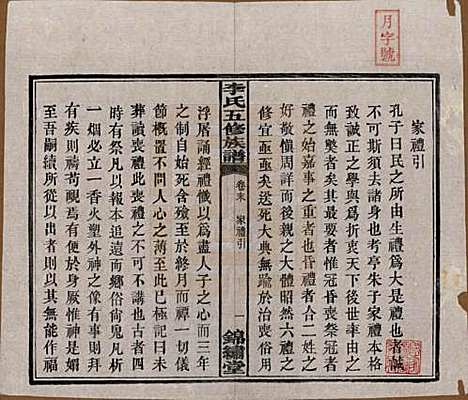 月字號
家禮引
孔子曰民之所由生禮爲大是禮也者誠
不可斯須去諸身也考亭朱子家禮本
致誠正之學與爲折衷天下後世率由
而無愆其最要者惟冠昏喪祭冠者
禮之始嘉事之重者也昏禮者合二姓之
好敬愼周詳而後親之大體昭然六禮之
修宜亟亟矣送死大典無踰於治喪俗用
李氏五修族譜
卷末
家禮引
一
錦繡堂
浮屠誦經禮懺以爲盡人子之心而三年
之制自始死含殮至於終月而禫一切儀
節概置不問人心之薄至此已極記曰未
葬讀喪禮此喪禮之不可不講也古者四
時有祭凡以報本追遠而鄉俗尙鬼凡析
一烟必立一香火塑外神之像有事則拜
有疾則禱一何好於身厥惟神是媚
至吾嗣續所從以出者則以其無能作福